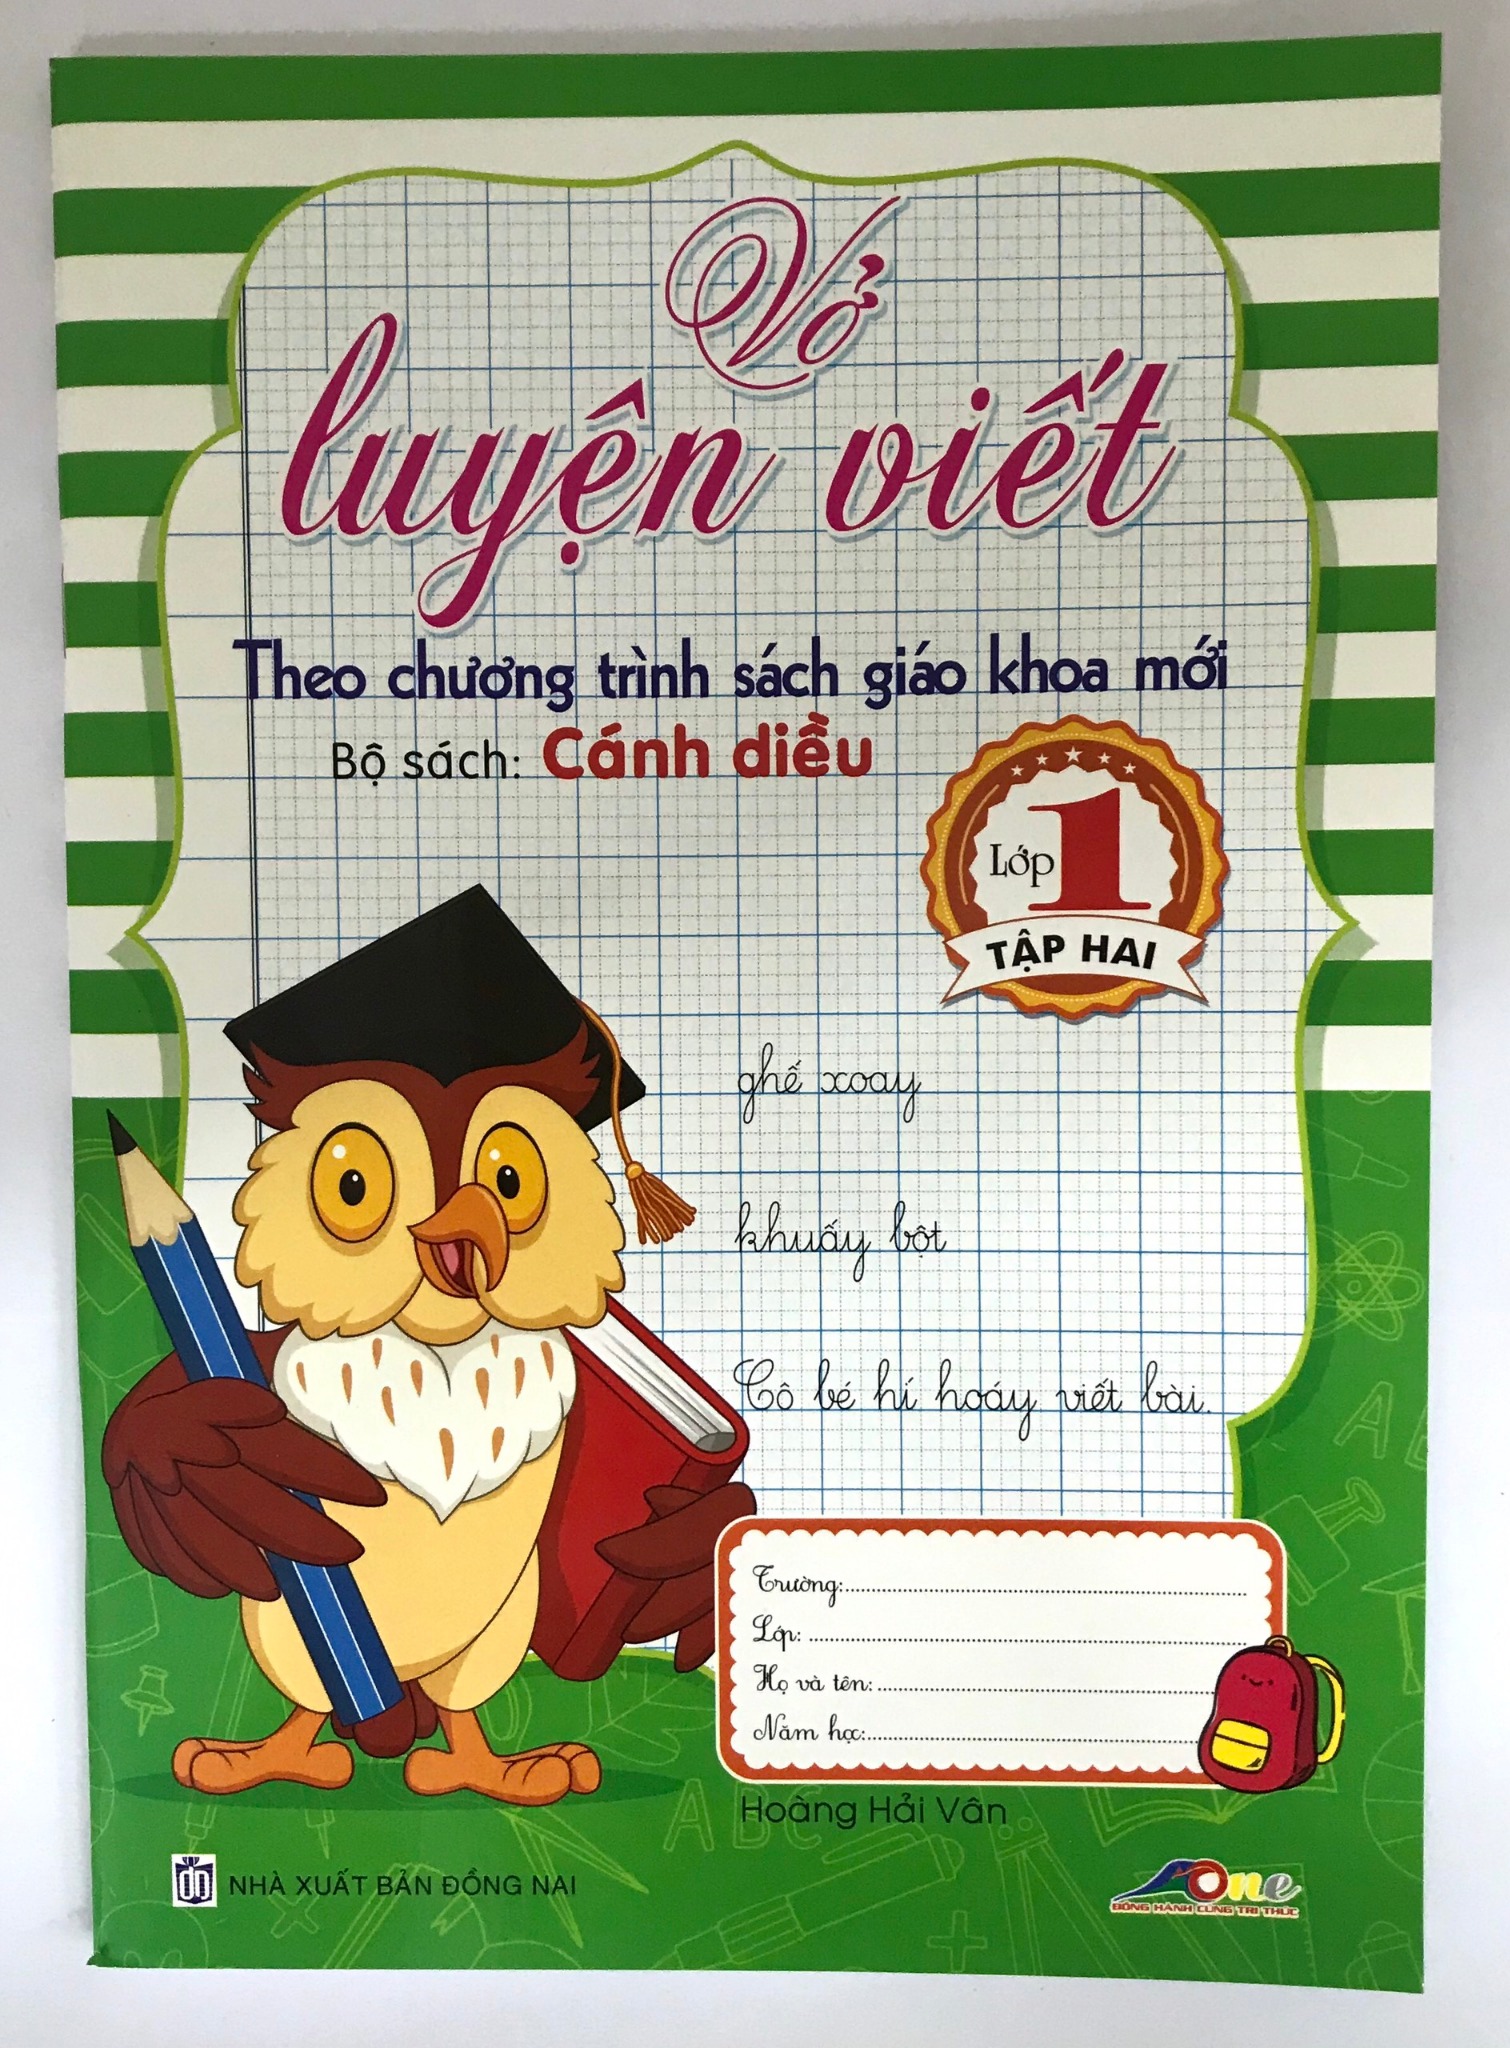 Vở
luyện viết
Theo chương trình sách giáo khoa mới
Bộ sách: Cánh diều
Lớp 1
TẬP HAI
ghế xoay
khuấy bột
Cô bé hí hoáy viết bài.
Trường:
Lớp:
Họ và tên:
Năm học:
Hoàng Hải Vân
NHÀ XUẤT BẢN ĐỒNG NAI
One
ĐỒNG HÀNH CÙNG TRI THỨC
ABC